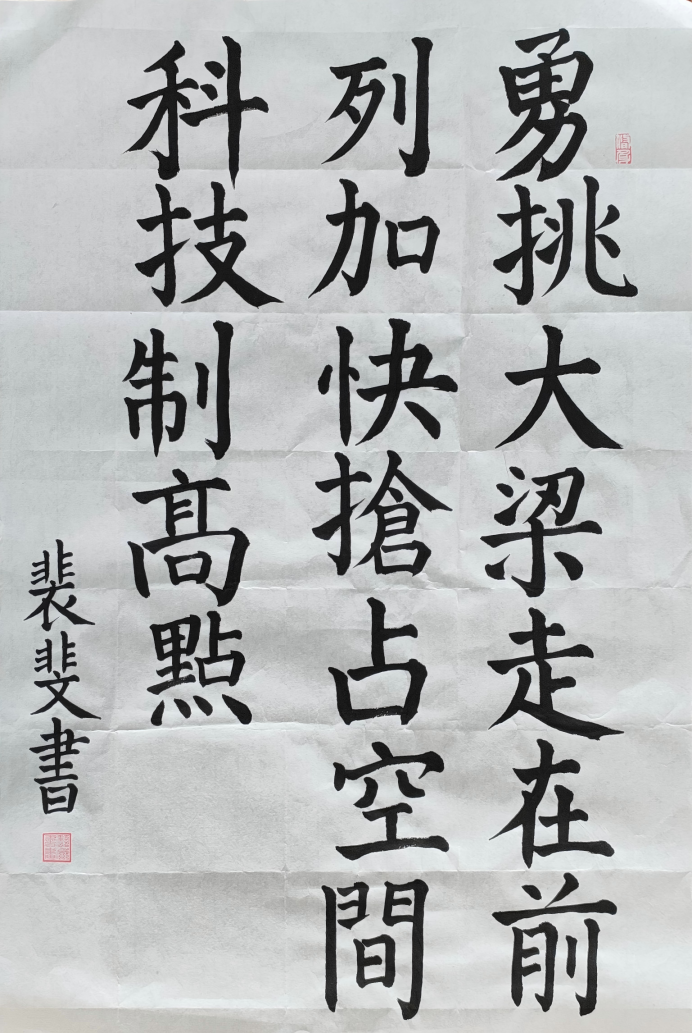 勇挑大梁走在前
列加快搶占空間
科技制高點
裴斐書